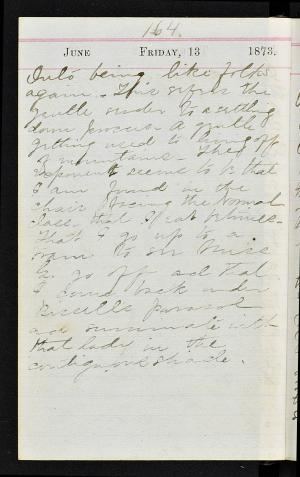 164.
JUNE FRIDAY, 13 1873.
Into being like folks
again. This refers the
gentle reader to a settling
down process. A gentle
getting used to being off
of mountains. The
exponent seems to be that
I am found in the
chair facing the Normal
class, that I eat
That I go up to a
room to
& go off so that
I come back under
parasol
and ruminate with
that lady in the
contiguous shade.